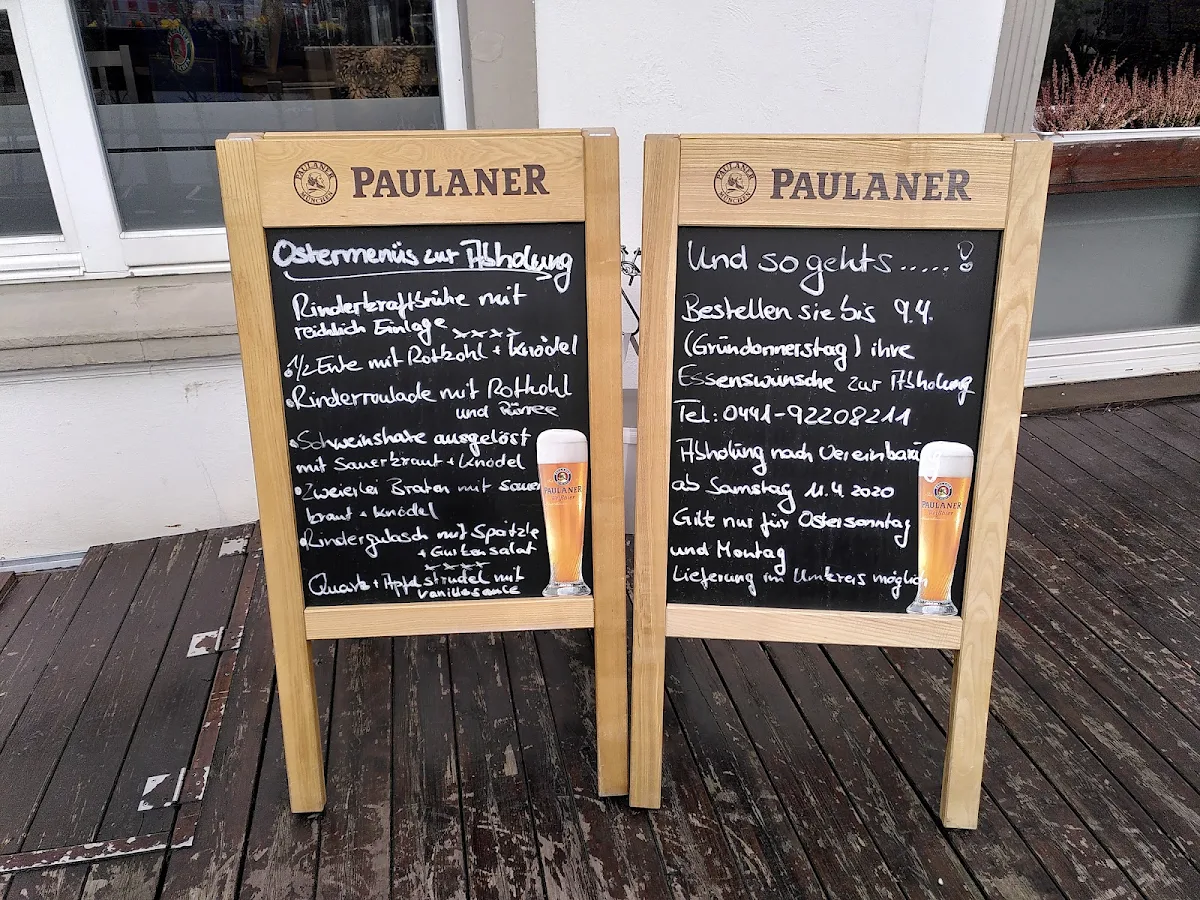 PAULANER
MÜNCHEN
PAULANER
Ostermenüs zur Abholung
Rinderkraftbrühe mit
reichlich Einlage
1/2 Ente mit Rotkohl + Knödel
Rinderroulade mit Rotkohl
und Püree
Schweinshaxe ausgelöst
mit Sauerkraut + Knödel
Zweierlei Braten mit Sauer
kraut + Knödel
Rindergulasch mit Spätzle
+ Gurkensalat
Quark + Apfelstrudel mit
Vanillesauce
PAULANER
PAULANER
MÜNCHEN
PAULANER
Und so gehts.....!
Bestellen sie bis 9.4.
(Gründonnerstag) ihre
Essenswünsche zur Abholung
Tel: 0441-92208211
Abholung nach Vereinbarung
ab Samstag 11.4 2020
Gilt nur für Ostersonntag
und Montag
Lieferung im Umkreis möglich
PAULANER